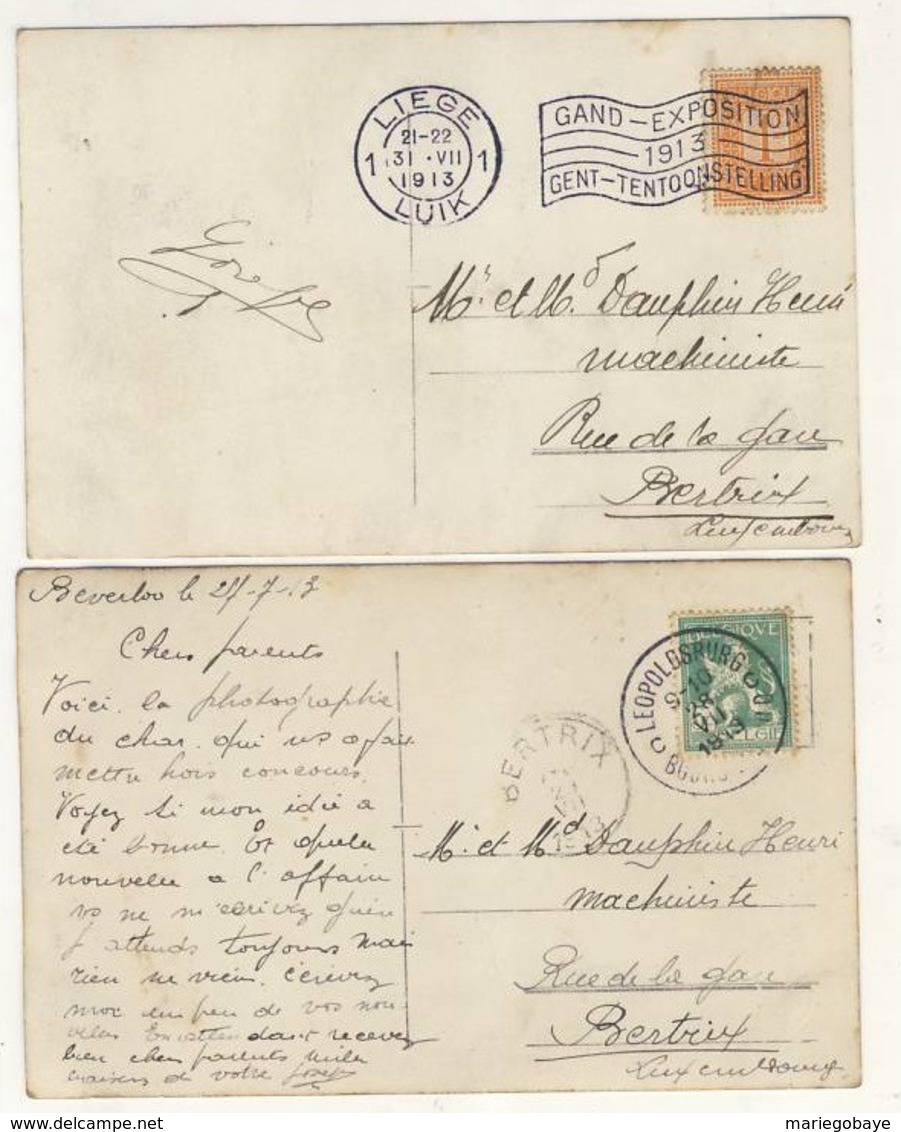 LIEGE
21-22
1 31 VII 1
1913
LUIK
GAND-EXPOSITION
1913
GENT-TENTOONSTELLING
Mr et Md Dauphin Henri
machiniste
Rue de la gare
Bertrix
Luxembourg
Beverloo le 27-7-13
Chers parents
Voici la photographie
du char qui ns a fait
mettre hors concours.
Voyez si mon idée a
été bonne. Et quelle
nouvelle a l'affaire
vs ne m'écrivez guère
j'attends toujours mais
rien ne vient. écrivez
moi un peu de vos nou-
velles En attendant recevez
bien chers parents mille
baisers de votre Joseph
BELGIQUE
LEOPOLDSBURG
9-10
28
VII
1913
BELGIE
BERTRIX
Mr et Md Dauphin Henri
machiniste
Rue de la gare
Bertrix
Luxembourg
mariegobaye